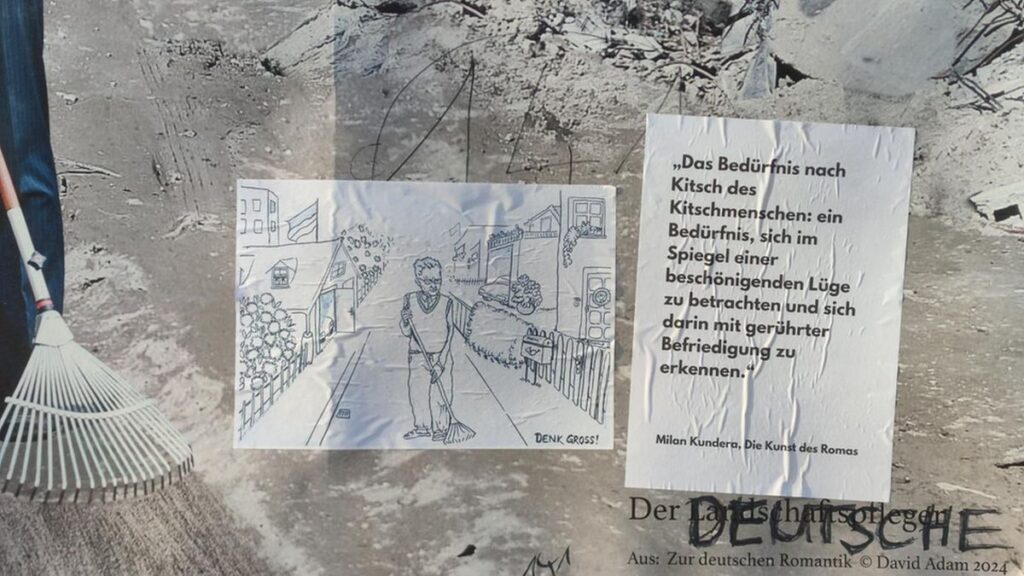 DENK GROSS!
„Das Bedürfnis nach
Kitsch des
Kitschmenschen: ein
Bedürfnis, sich im
Spiegel einer
beschönigenden Lüge
zu betrachten und sich
darin mit gerührter
Befriedigung zu
erkennen.“
Milan Kundera, Die Kunst des Romas
Der Landschaftspfleger
DEUTSCHE
Aus: Zur deutschen Romantik © David Adam 2024